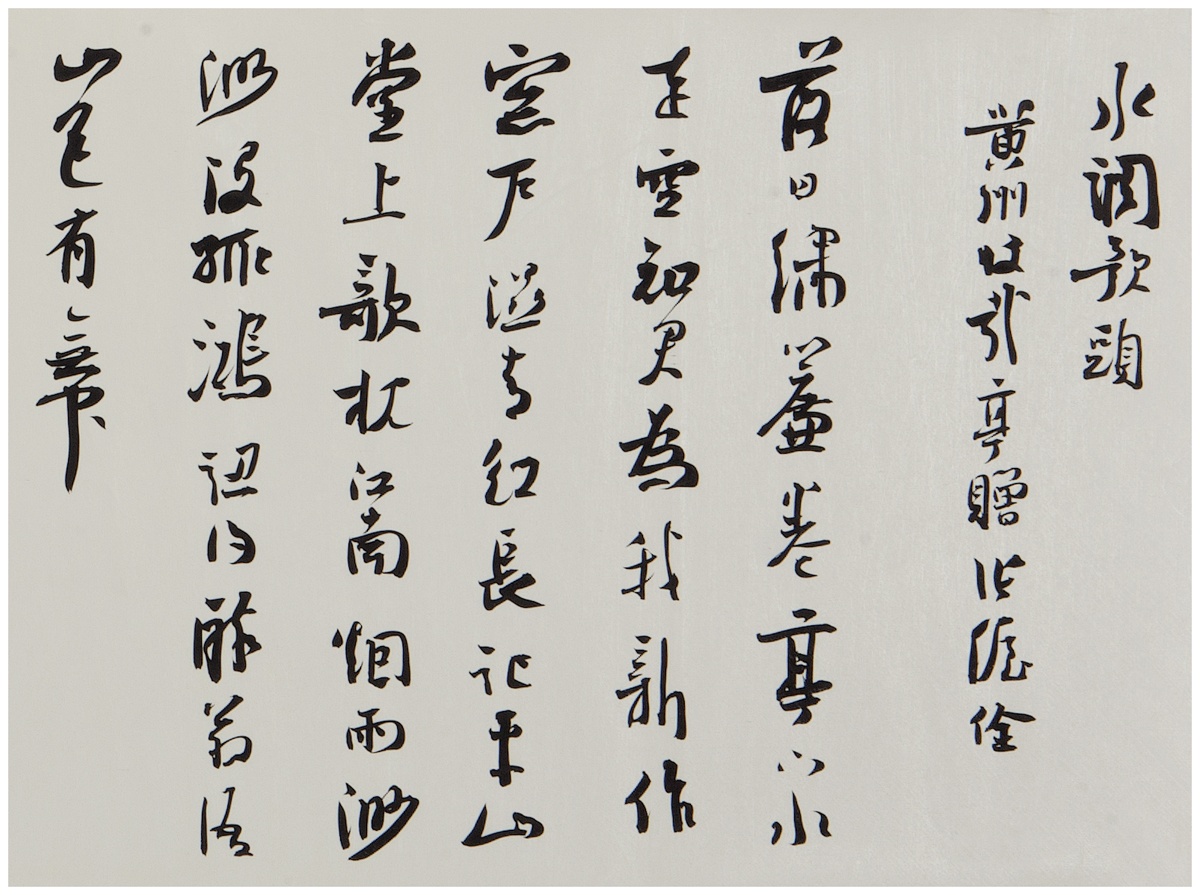 水調歌頭
黄州快哉亭贈張偓佺
落日繡簾卷亭下水
連空知君為我新作
窓戶濕青紅長記平山
堂上欹枕江南烟雨渺
渺没孤鴻認得醉翁語
山色有無中